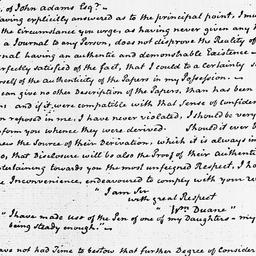 , of John adams Esqr.—
having explicitly answered as to the principal point, I mu
the circumstance you urge, as having never given any
a Journal to any Person, does not disprove the Reality of
nal having an authentic and demonstrable Existence —
perfectly satisfied of the fact, that I could to a certainty s
self of the authenticity of the Papers in my Possession. —
can give no other Description of the Papers, than has been
and if it were compatible with that Sense of confiden
on reposed in me, I have never violated, I should be very
form you whence they were derived. Should it ever b
new the Source of their Derivation, which it is always in
o, that Disclosure will be also the Proof of their authenti
entertaining towards you the most unfeigned Respect, I ha
e Inconvenience, endeavoured to comply with your re
"I am Sir
with great Respect
"Wm Duane"
"I have made use of the Pen of one of my Daughters — my
being steady enough." —
ave not had Time to bestow that further Degree of Consider